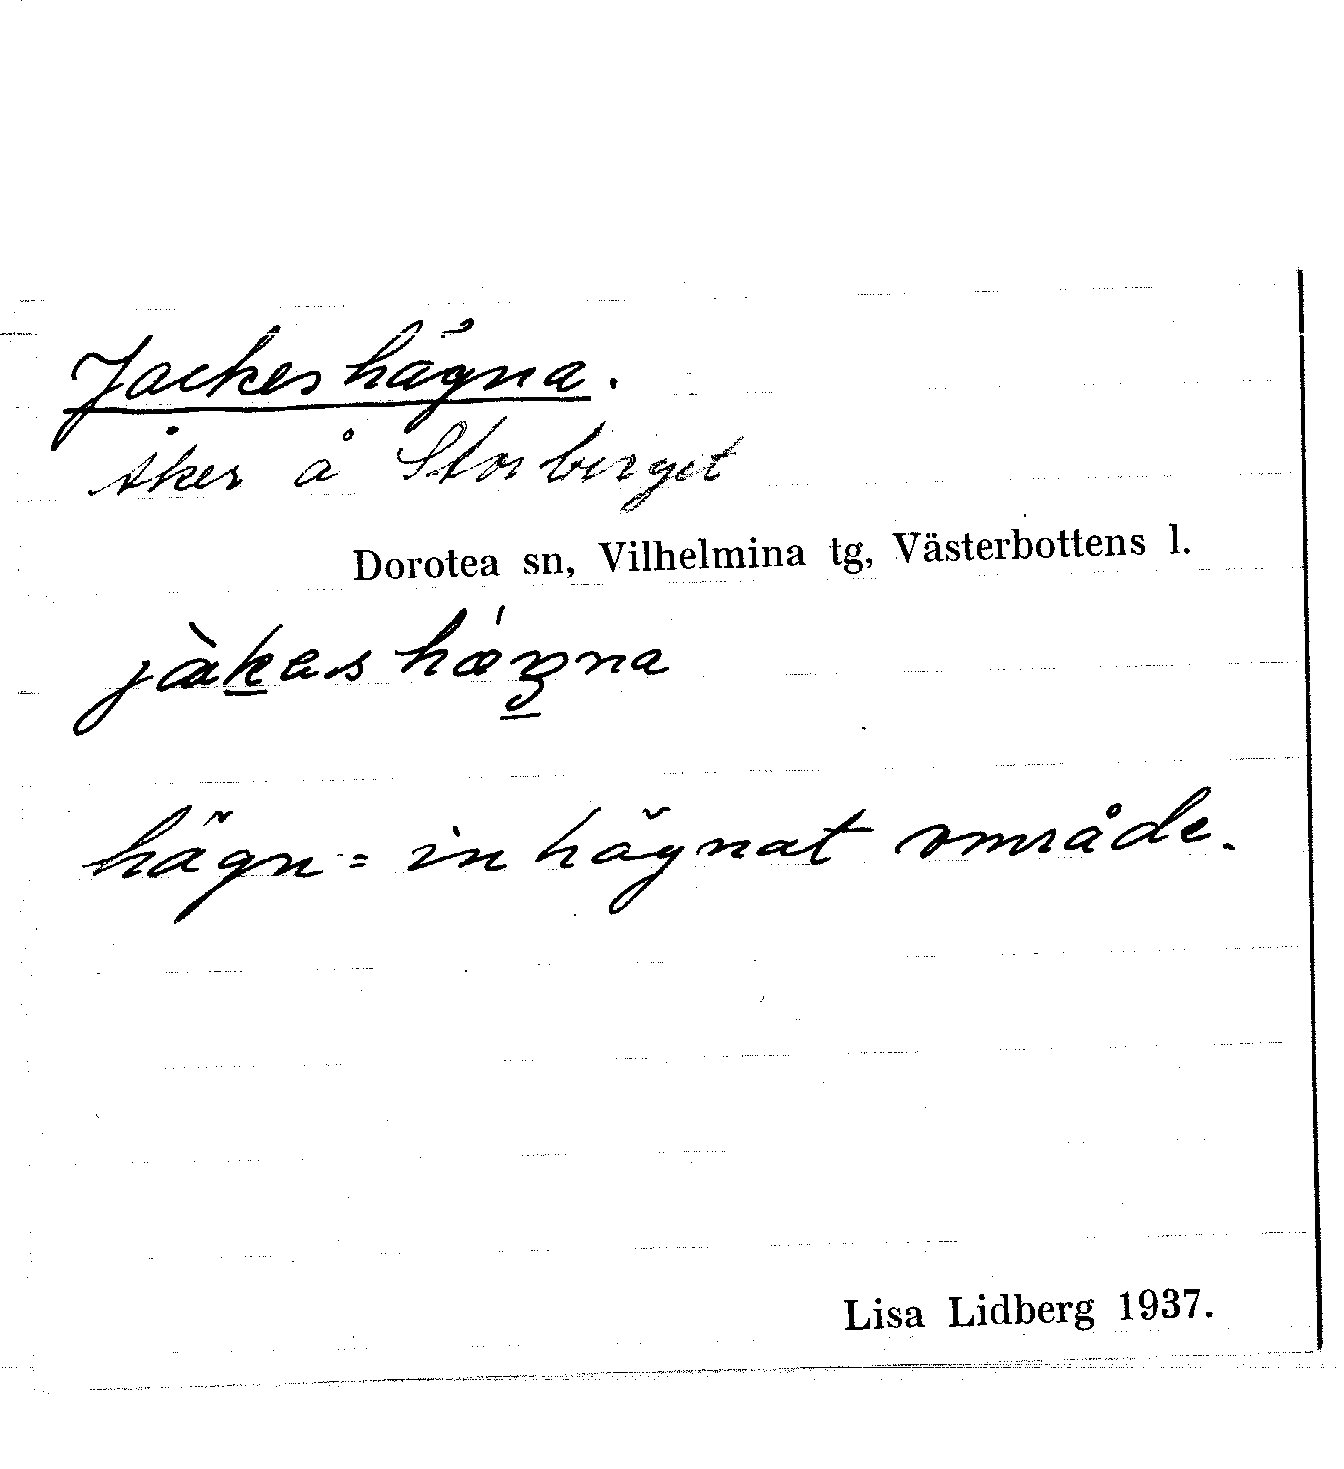 Jackeshägna.
åker å Storberget
Dorotea sn, Vilhelmina tg, Västerbottens l.
jàkas hǿgna
hägn = inhägnat område.
Lisa Lidberg 1937.